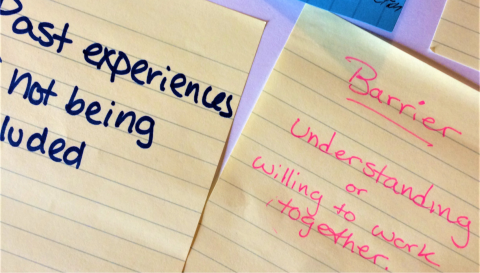 Past experiences
not being
luded
Barrier
Understanding
or
willing to work
together.